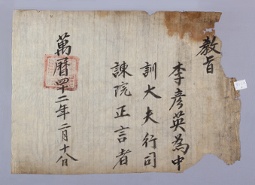 教旨
李彦英為中
訓大夫行司
諫院正言者
萬曆四十二年二月十八日